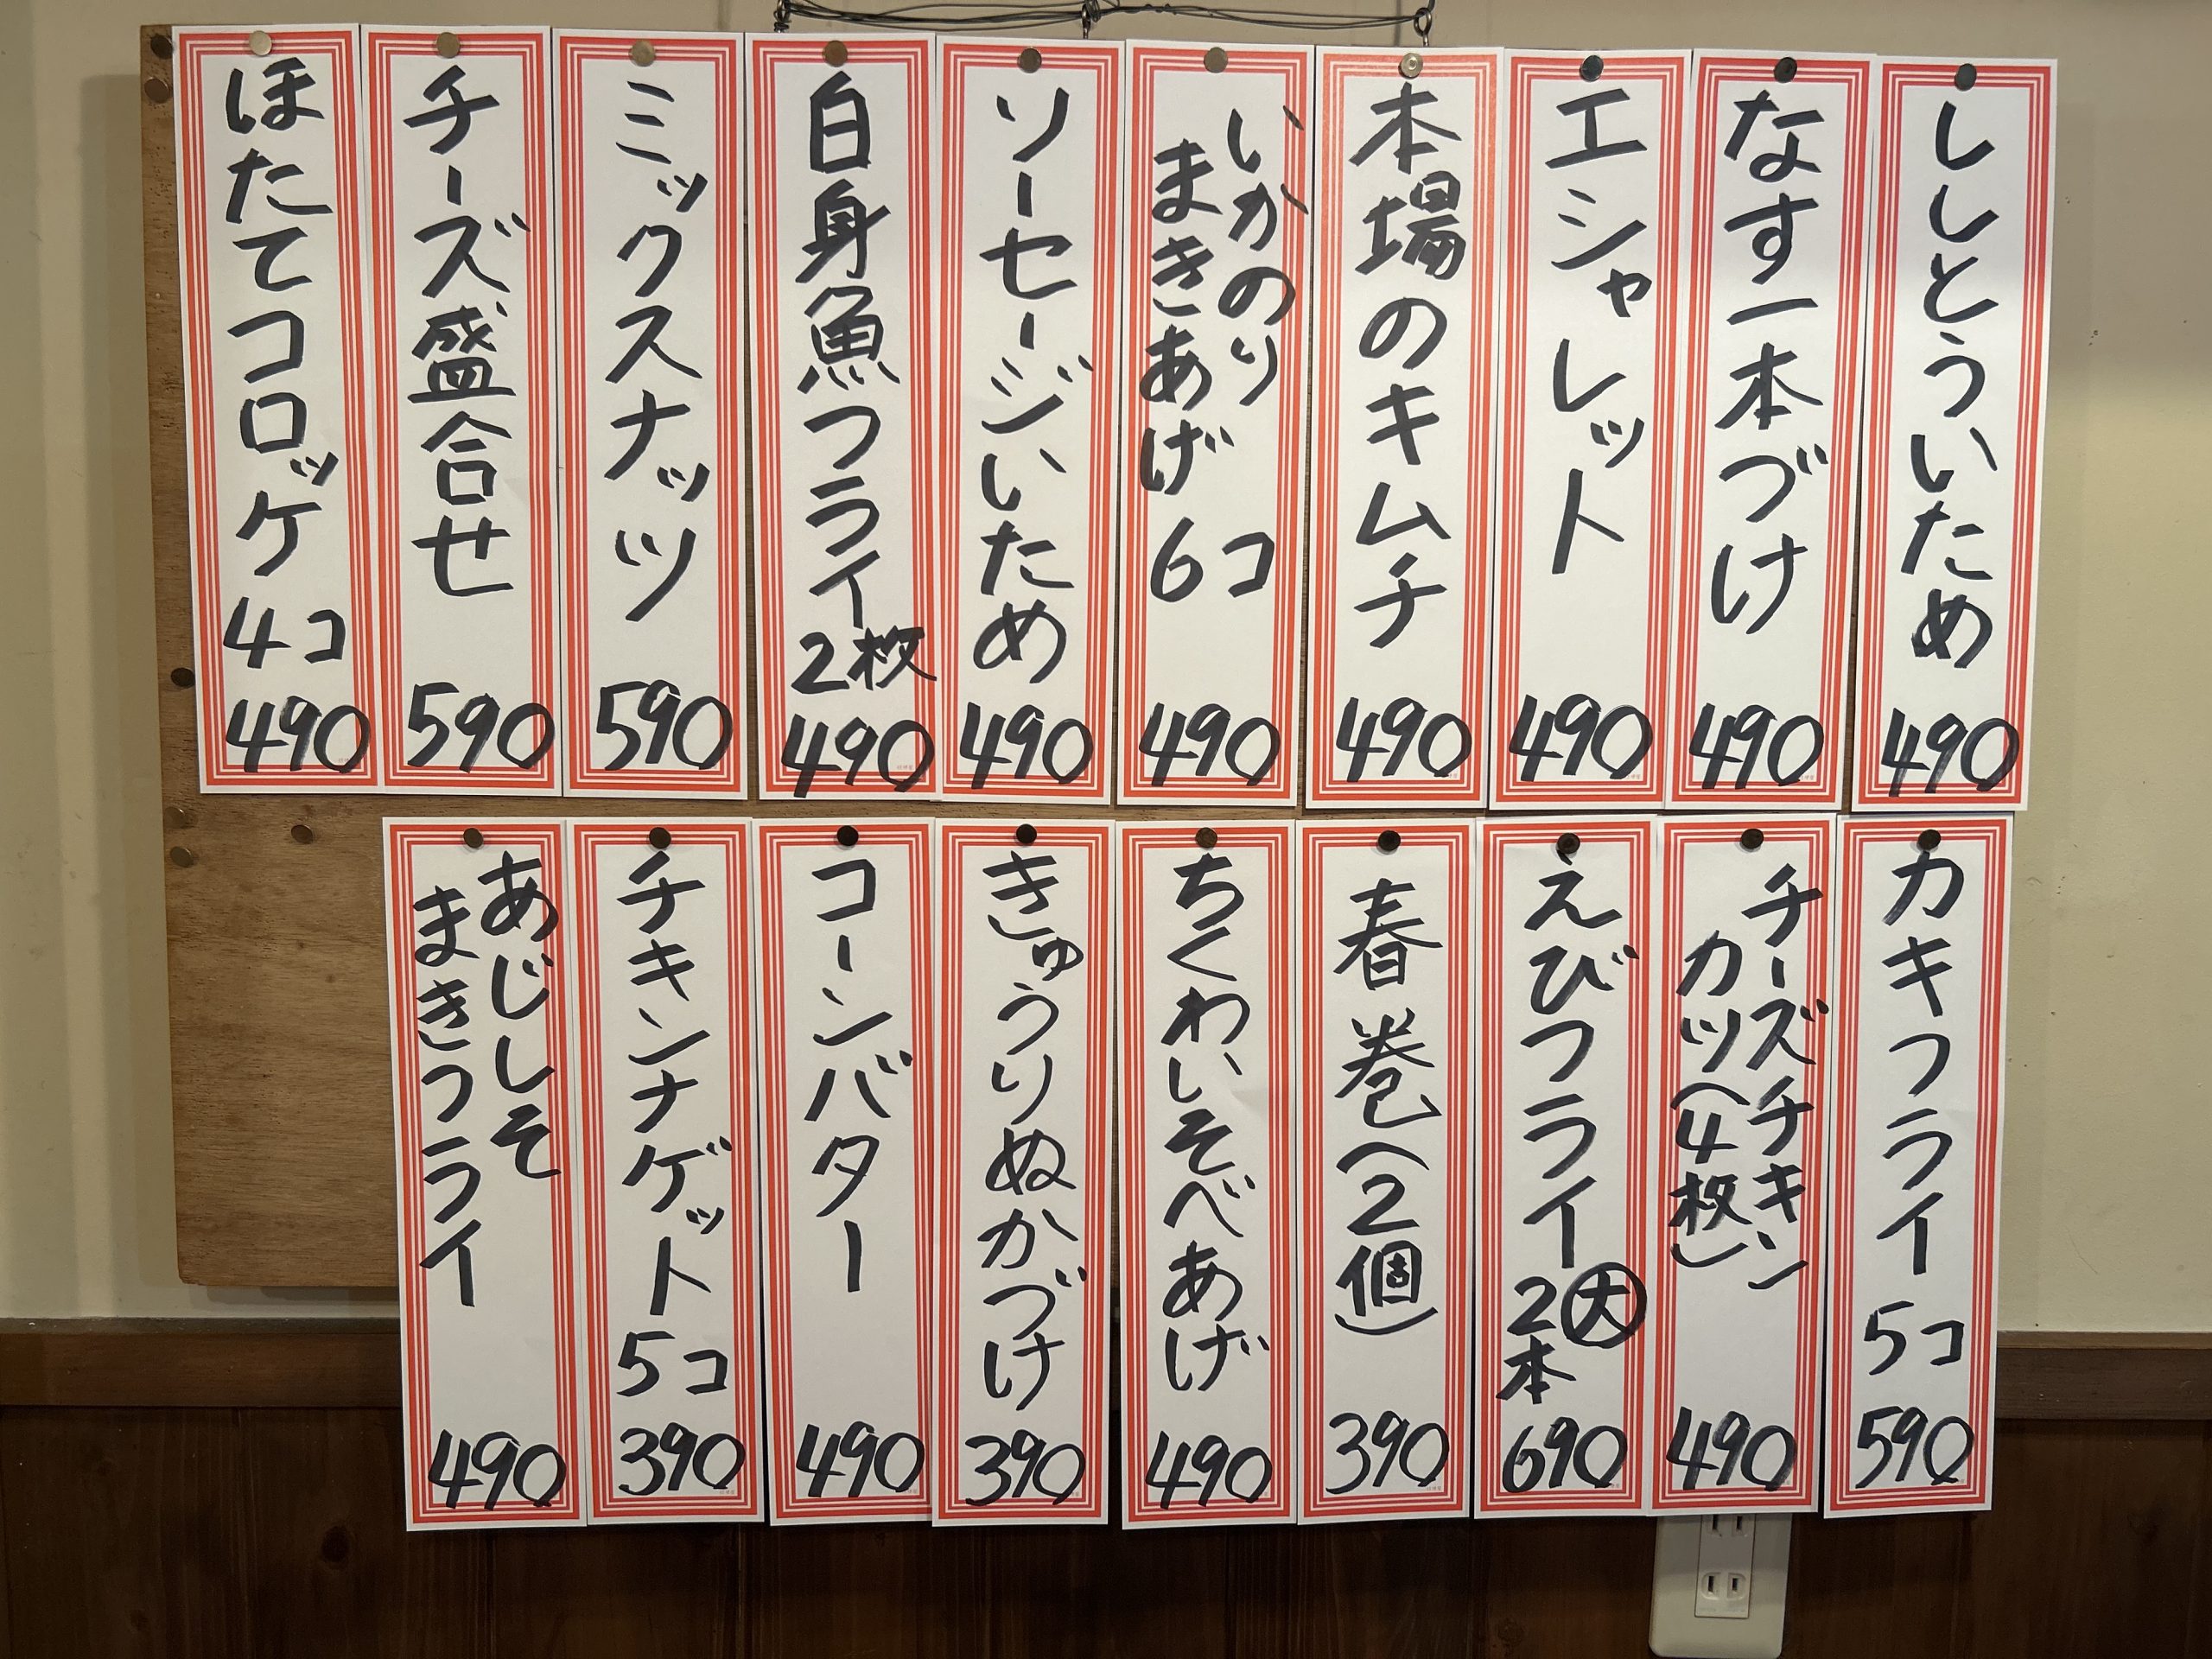 ししとういため
490
なす一本づけ
490
エシャレット
490
本場のキムチ
490
いかのり
まきあげ
6コ
490
ソーセージいため
490
白身魚フライ
2枚
490
ミックスナッツ
590
チーズ盛合せ
590
ほたてコロッケ
4コ
490
カキフライ
5コ
590
チーズチキン
カツ(4枚)
490
えびフライ
大
2本
690
春巻(2個)
390
ちくわいそべあげ
490
きゅうりぬかづけ
390
コーンバター
490
チキンナゲット
5コ
390
あじしそ
まきフライ
490